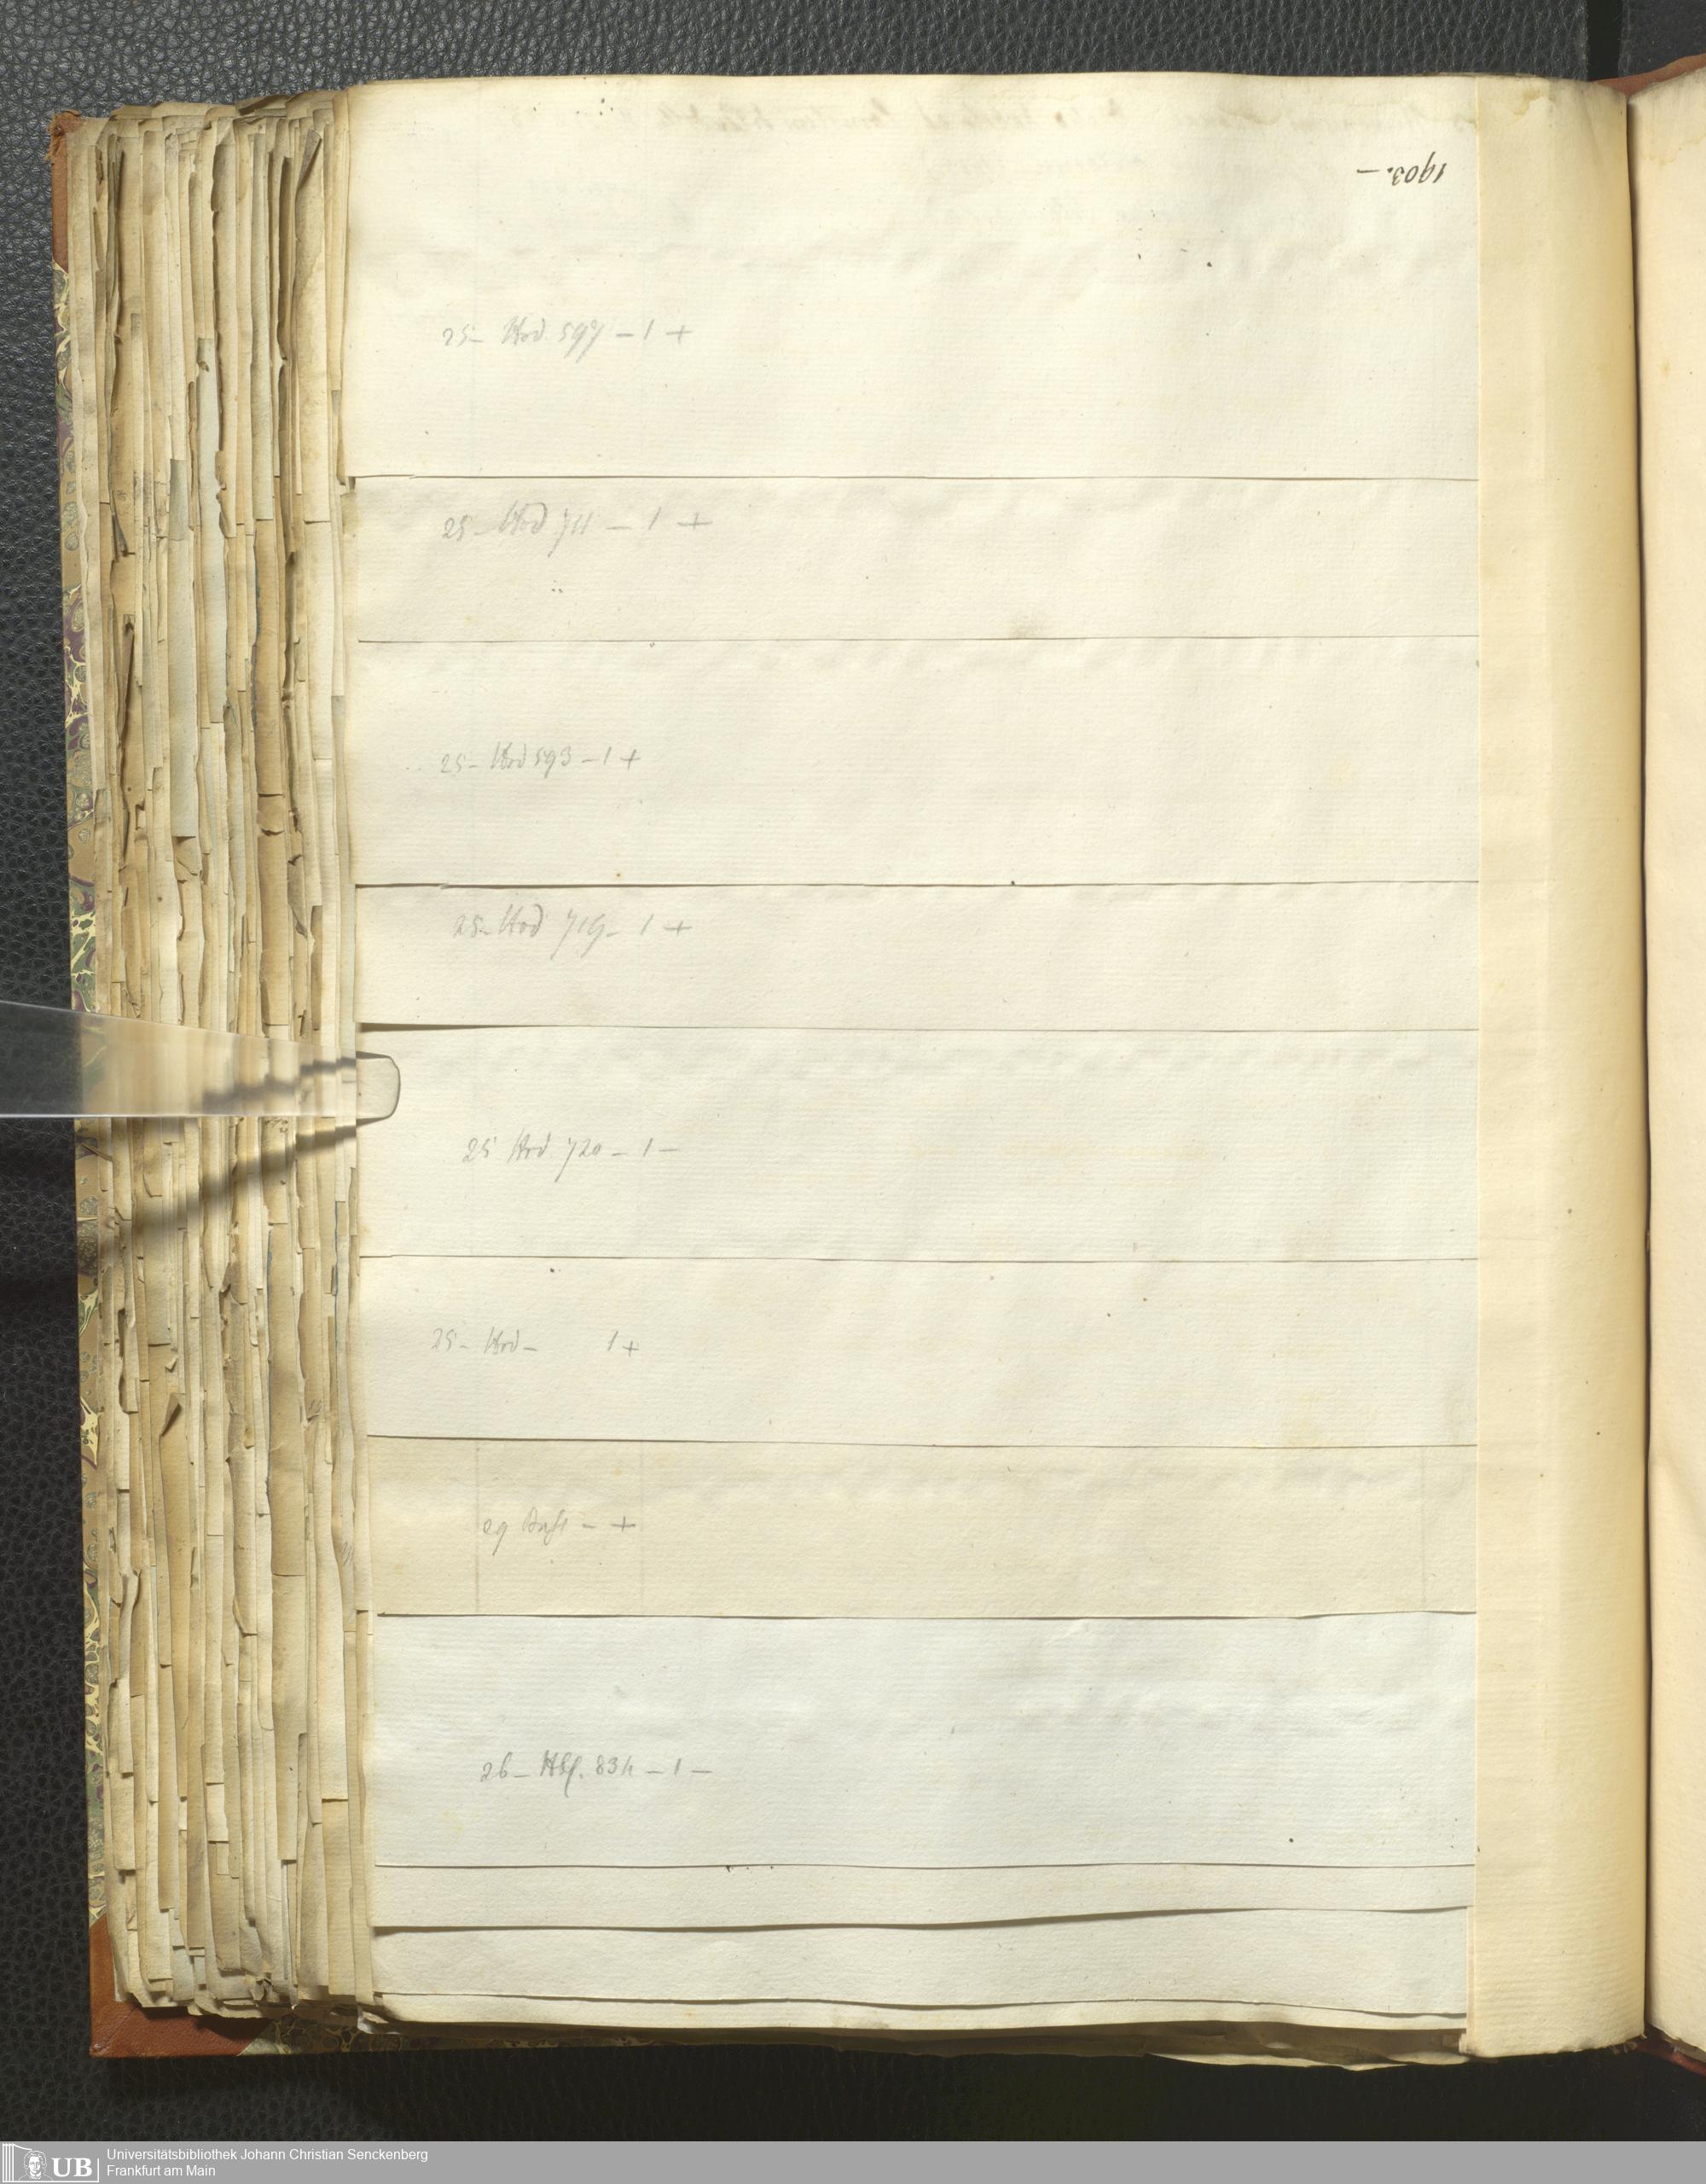 1903. —
25 – Hrd. 597 – 1 +
25 – Hrd 711 – 1 +
25 – Hrd 593 – 1 +
25 – Hrd 719 – 1 +
25 Hrd 720 – 1 –
25 – Hrd – 1 +
29 – +
26 – 834 – 1 –
UB
Universitätsbibliothek Johann Christian Senckenberg
Frankfurt am Main